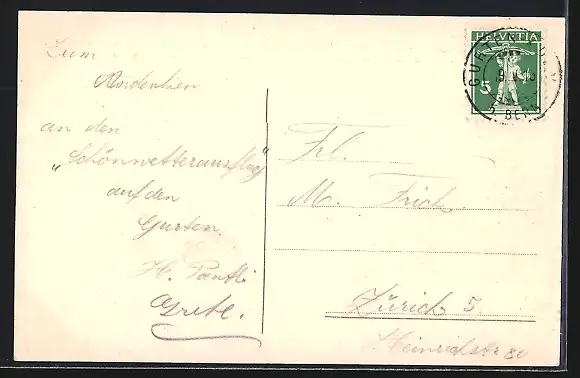 Zum
Andenken
an den
„Schönwetterausflug"
auf den
Gurten.
H.
Grete.
Frl.
M. Frick
Zürich 5
Heinrichstr 80
HELVETIA
5
BERN